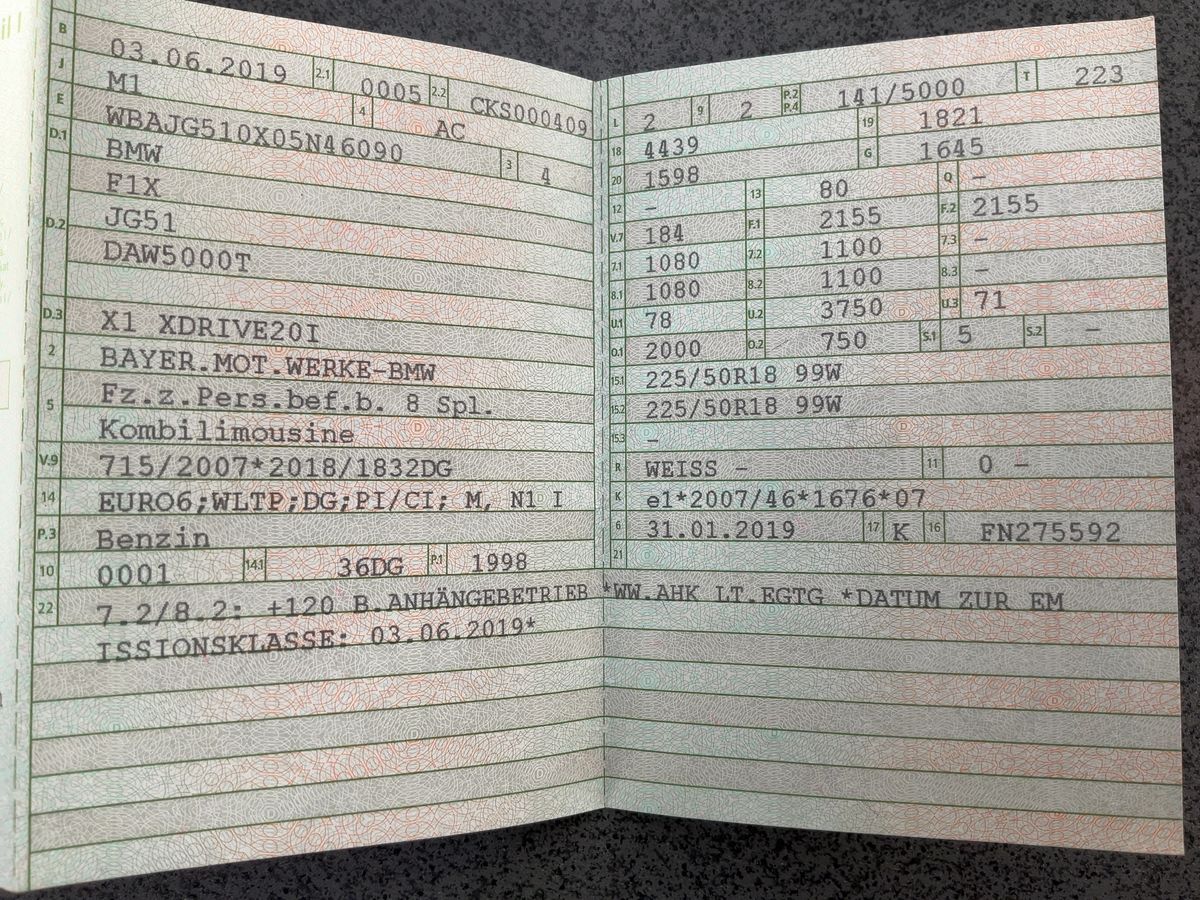 B 03.06.2019 2.1 0005 2.2 CKS000409
J M1 4 AC
E WBAJG510X05N46090 3 4
D.1 BMW
D.2 F1X
JG51
DAW5000T
D.3 X1 XDRIVE20I
2 BAYER.MOT.WERKE-BMW
5 Fz.z.Pers.bef.b. 8 Spl.
Kombilimousine
V.9 715/2007*2018/1832DG
14 EURO6;WLTP;DG;PI/CI; M, N1 I
P.3 Benzin
10 0001 14.1 36DG P.1 1998
22 7.2/8.2: +120 B.ANHÄNGEBETRIEB *WW.AHK LT.EGTG *DATUM ZUR EM
ISSIONSKLASSE: 03.06.2019*
L 2 9 2 P.2 P.4 141/5000 T 223
18 4439 19 1821
20 1598 G 1645
12 – 13 80 Q –
V.7 184 F.1 2155 F.2 2155
7.1 1080 7.2 1100 7.3 –
8.1 1080 8.2 1100 8.3 –
U.1 78 U.2 3750 U.3 71
O.1 2000 O.2 750 S.1 5 S.2 –
15.1 225/50R18 99W
15.2 225/50R18 99W
15.3 –
R WEISS – 11 0 –
K e1*2007/46*1676*07
6 31.01.2019 17 K 16 FN275592
21